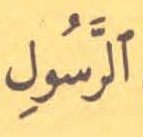 ٱلرَّسُولِ